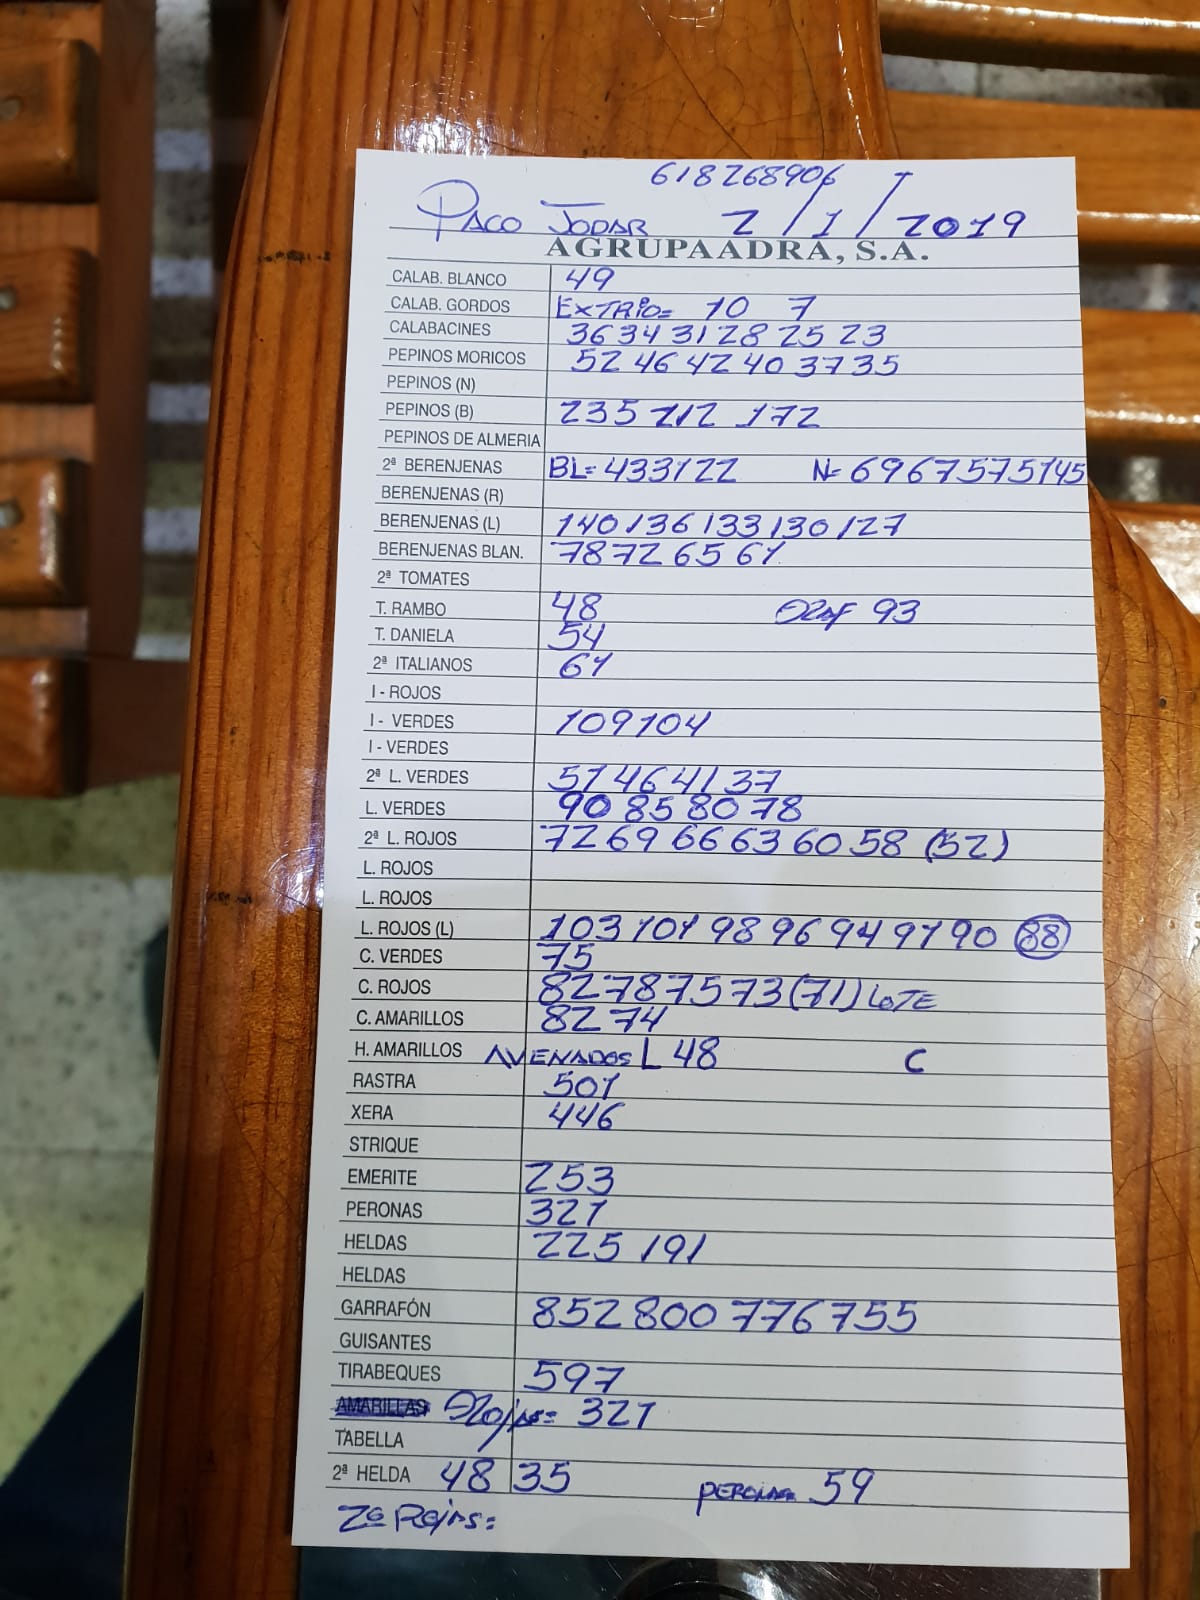 618268906
PACO JODAR 2/1/2019
AGRUPAADRA, S.A.
CALAB. BLANCO 49
CALAB. GORDOS EXTRIO= 10 7
CALABACINES 36 34 31 28 25 23
PEPINOS MORICOS 52 46 42 40 37 35
PEPINOS (N)
PEPINOS (B) 235 212 172
PEPINOS DE ALMERIA
2ª BERENJENAS BL= 43 31 22 N= 69 67 57 51 45
BERENJENAS (R)
BERENJENAS (L) 140 136 133 130 127
BERENJENAS BLAN. 78 72 65 61
2ª TOMATES
T. RAMBO 48 93
T. DANIELA 54
2ª ITALIANOS 61
I - ROJOS
I - VERDES 109 104
I - VERDES
2ª L. VERDES 51 46 41 37
L. VERDES 90 85 80 78
2ª L. ROJOS 72 69 66 63 60 58 (52)
L. ROJOS
L. ROJOS
L. ROJOS (L) 103 101 98 96 94 91 90 88
C. VERDES 75
C. ROJOS 82 78 75 73 (71) LOTE
C. AMARILLOS 82 74
H. AMARILLOS AVENADOS L 48 C
RASTRA 501
XERA 446
STRIQUE
EMERITE 253
PERONAS 321
HELDAS 225 191
HELDAS
GARRAFÓN 852 800 776 755
GUISANTES
TIRABEQUES 597
AMARILLAS Rojas= 321
TABELLA
2ª HELDA 48 35 PERONA= 59
2ª Rojas=